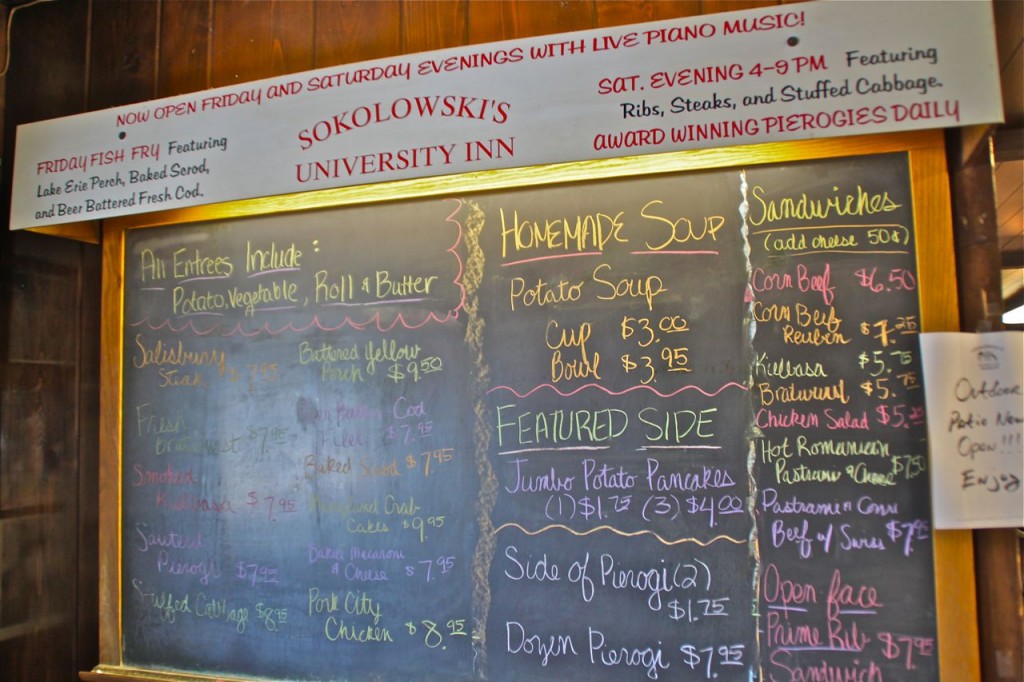 NOW OPEN FRIDAY AND SATURDAY EVENINGS WITH LIVE PIANO MUSIC!
FRIDAY FISH FRY Featuring
Lake Erie Perch, Baked Scrod,
and Beer Battered Fresh Cod.
SOKOLOWSKI'S
UNIVERSITY INN
SAT. EVENING 4-9 PM Featuring
Ribs, Steaks, and Stuffed Cabbage.
AWARD WINNING PIEROGIES DAILY
All Entrees Include:
Potato, Vegetable, Roll & Butter
Salisbury
Steak $7.95
Fresh
$7.95
Smoked
Kielbasa $7.95
Sauteed
Pierogi $7.95
Stuffed Cabbage $8.95
Buttered Yellow
Perch $9.50
Beer Batter Cod
Filet $7.95
Baked Scrod $7.95
Maryland Crab
Cakes $9.95
Baked Macaroni
& Cheese $7.95
Pork City
Chicken $8.95
HOMEMADE SOUP
Potato Soup
Cup $3.00
Bowl $3.95
FEATURED SIDE
Jumbo Potato Pancakes
(1) $1.75 (3) $4.00
Side of Pierogi (2)
$1.75
Dozen Pierogi $7.95
Sandwiches
(add cheese 50¢)
Corn Beef $6.50
Corn Beef
Reuben $7.25
Kielbasa $5.75
Bratwurst $5.75
Chicken Salad $5.25
Hot Romanian
Pastrami & Cheese $7.50
Pastrami n Corn
Beef w/ Swiss $7.95
Open face
Prime Rib $7.95
Sandwich
Outdoor
Patio Now
Open!!!
Enjoy